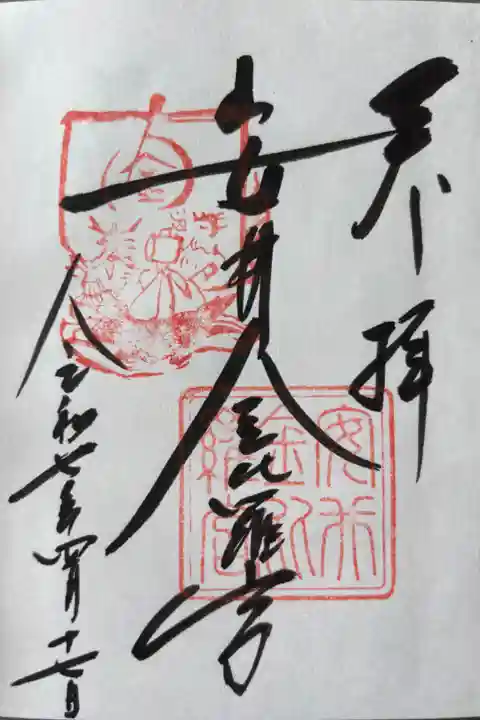 奉拝
安井金毘羅宮
令和七年四月十七日
金